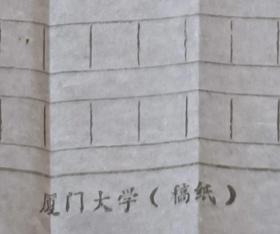 厦门大学（稿纸）